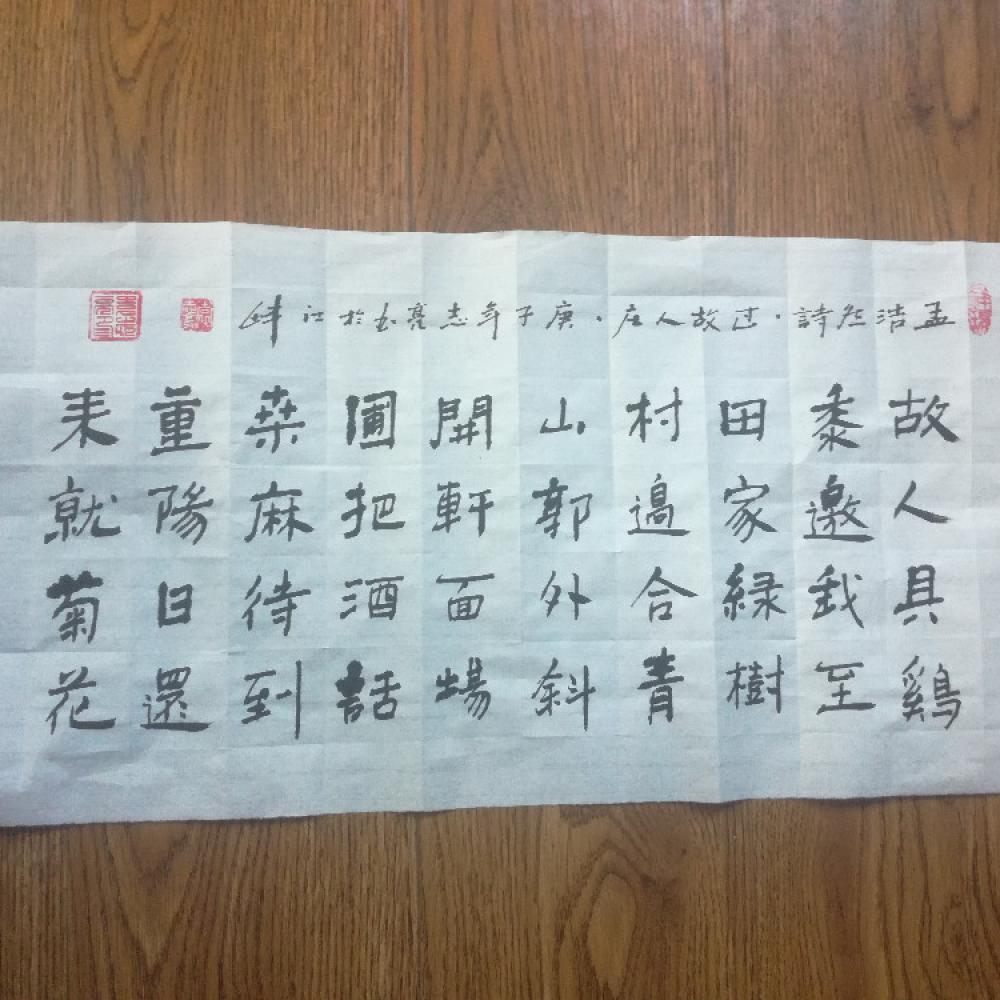 孟浩然詩·过故人庄·庚子年志亮书於
故人具鷄
黍邀我至
田家緑樹
村邊合青
山郭外斜
開軒面場
圃把酒話
桒麻待到
重陽日還
耒就菊花